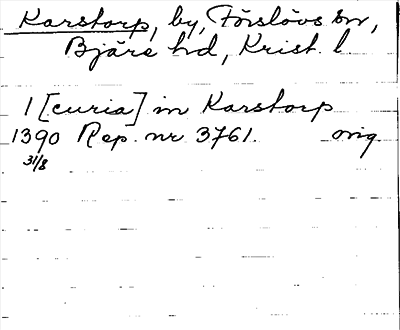 Karstorp, by, Förslövs sn,
Bjäre hd, Krist. l.
1 [curia] in Karstorp
1390 Rep. nr 3761. orig.
31/8